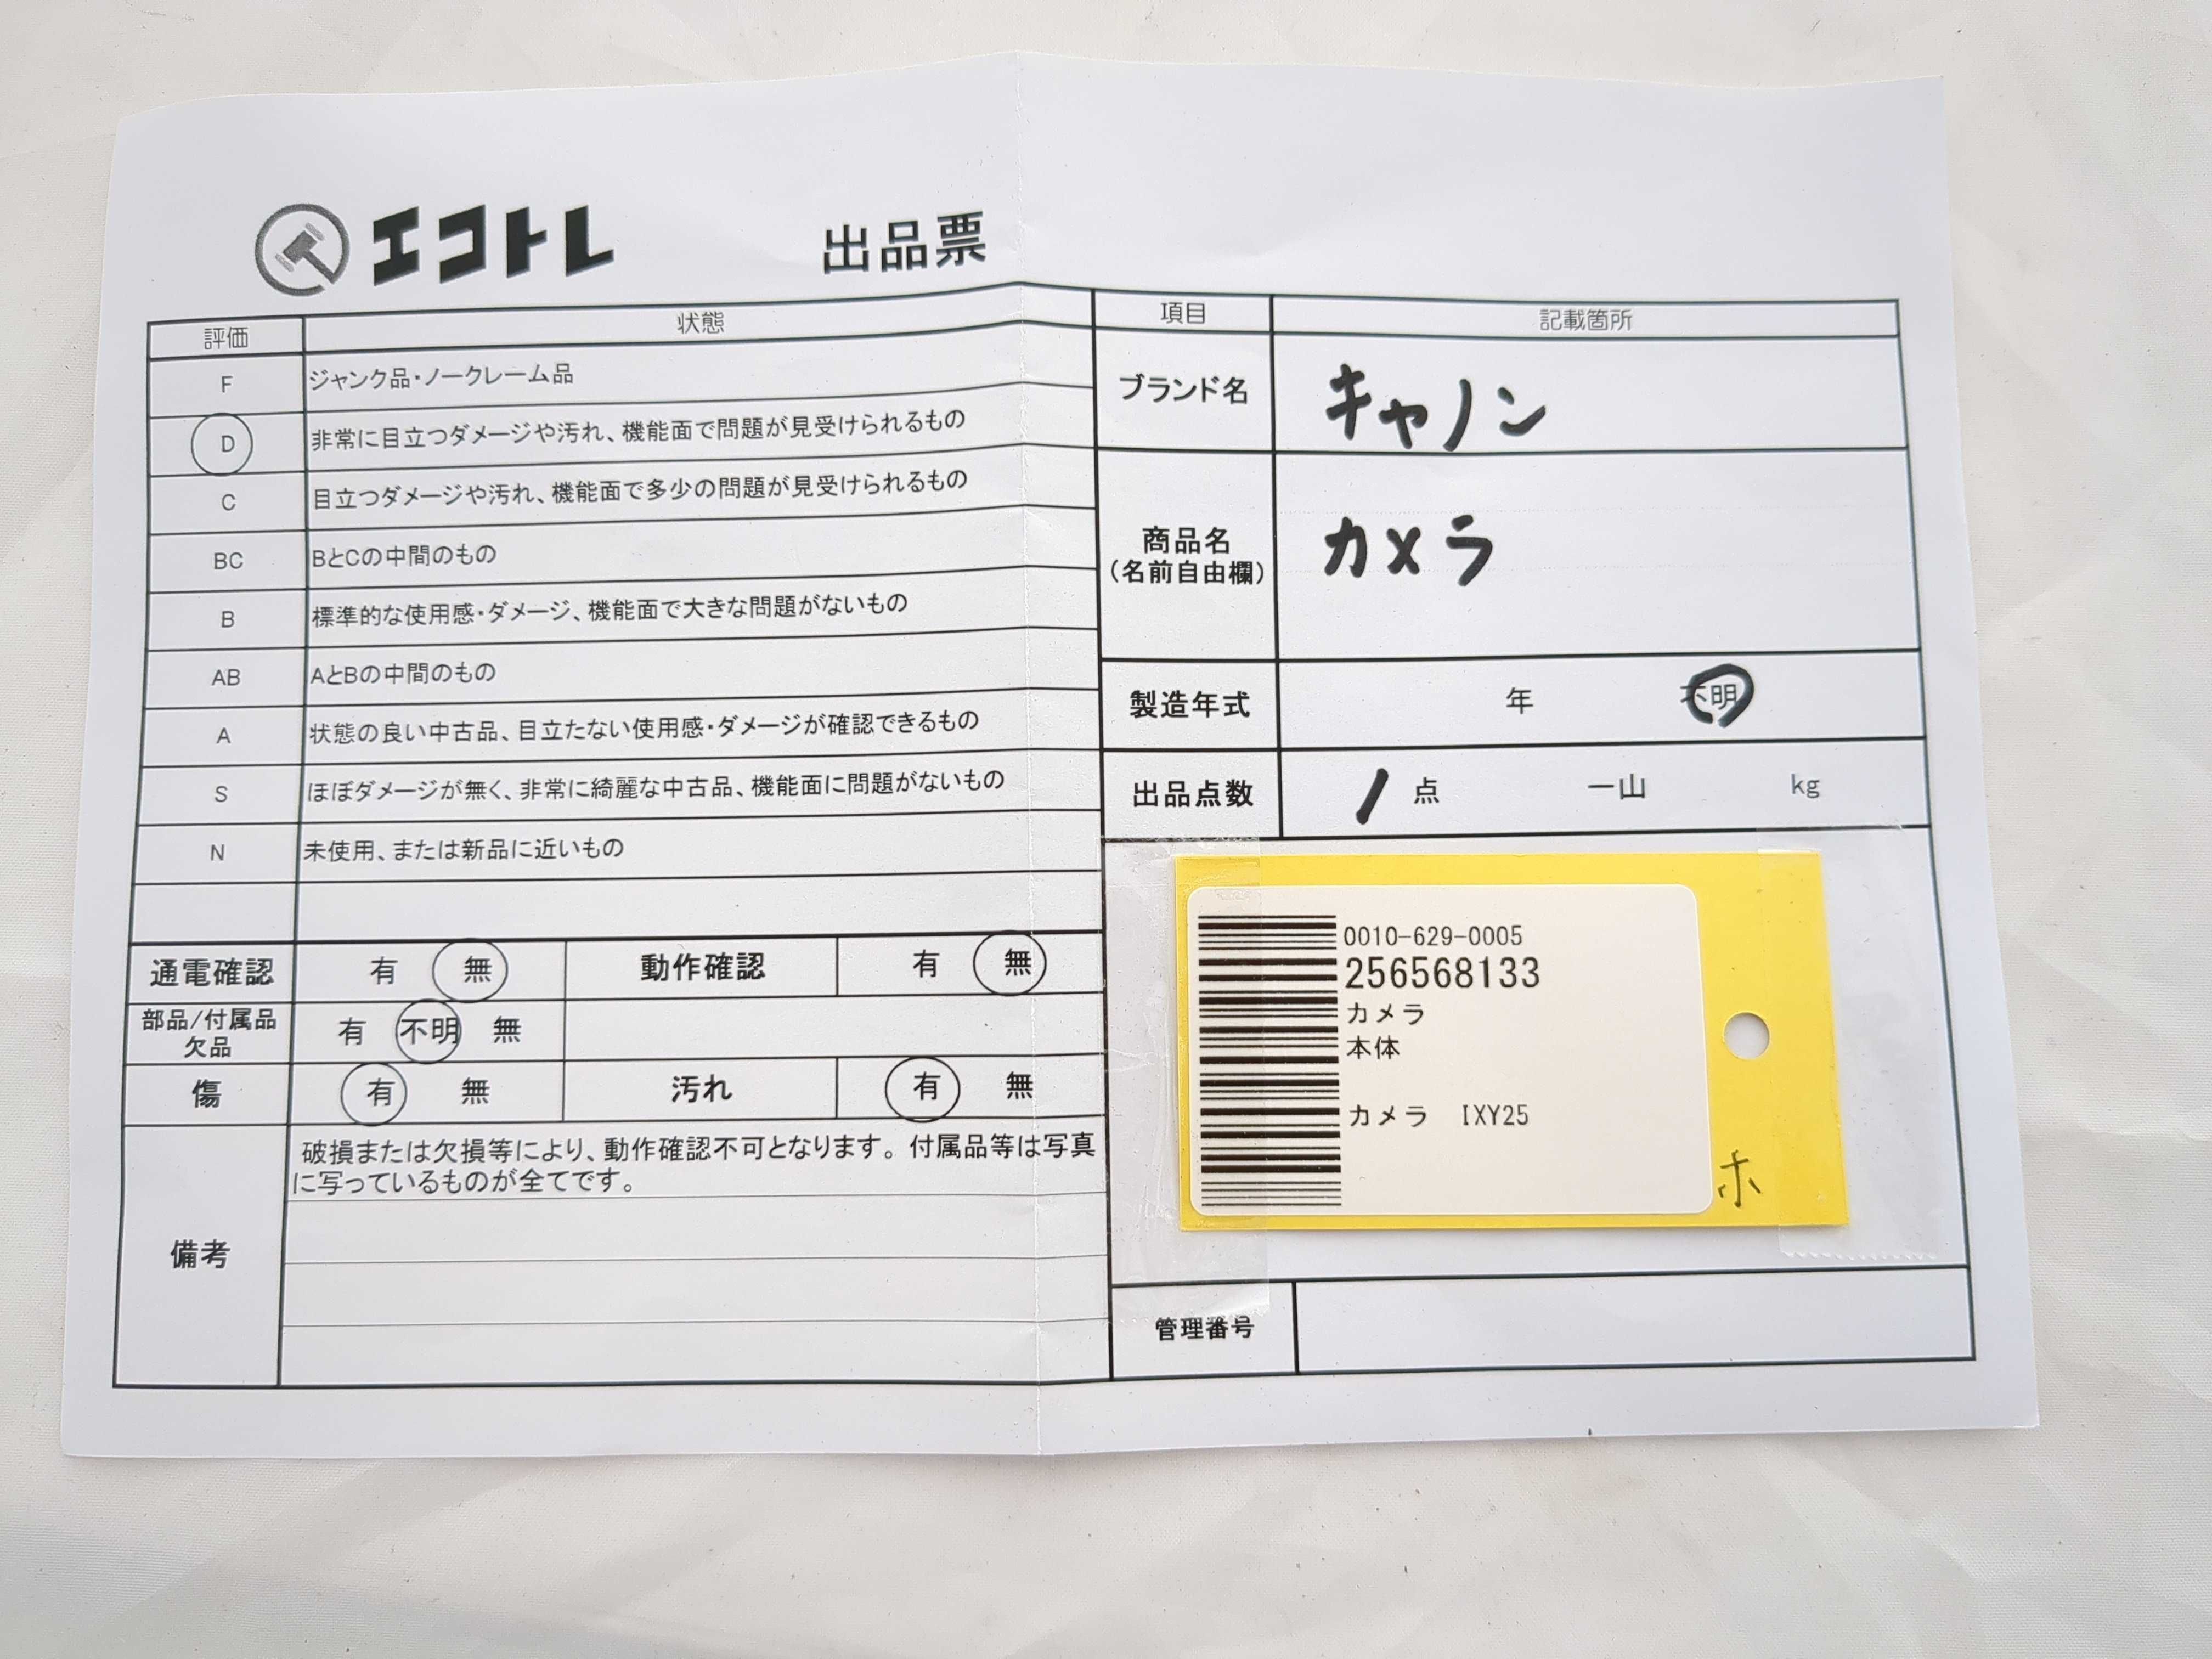 エコトレ
出品票
評価 状態
F ジャンク品・ノークレーム品
D 非常に目立つダメージや汚れ、機能面で問題が見受けられるもの
C 目立つダメージや汚れ、機能面で多少の問題が見受けられるもの
BC BとCの中間のもの
B 標準的な使用感・ダメージ、機能面で大きな問題がないもの
AB AとBの中間のもの
A 状態の良い中古品、目立たない使用感・ダメージが確認できるもの
S ほぼダメージが無く、非常に綺麗な中古品、機能面に問題がないもの
N 未使用、または新品に近いもの
通電確認 有 無 動作確認 有 無
部品/付属品
欠品 有 不明 無
傷 有 無 汚れ 有 無
備考
破損または欠損等により、動作確認不可となります。付属品等は写真
に写っているものが全てです。
項目 記載箇所
ブランド名 キャノン
商品名
(名前自由欄) カメラ
製造年式 年 不明
出品点数 1 点 一山 kg
0010-629-0005
256568133
カメラ
本体
カメラ IXY25
ホ
管理番号